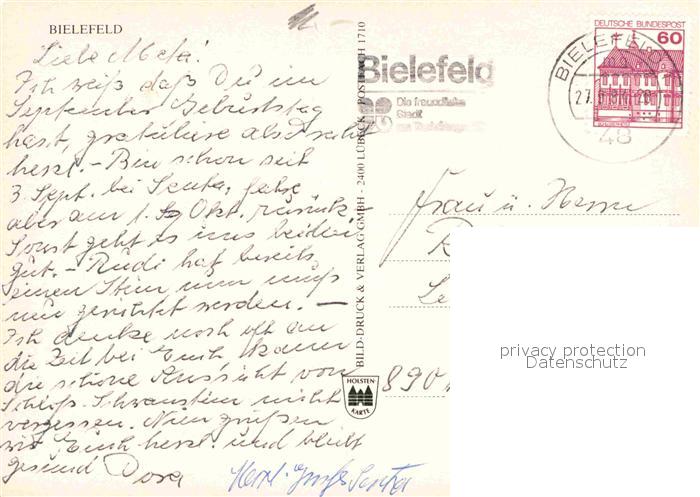 BIELEFELD
Liebe Meta!
Ich weiß daß Du im
September Geburtstag
hast, gratuliere also recht
herzl. - Bin schon seit
3. Sept. bei Senta, fahre
aber am 1. Okt. zurück -
Sonst geht es uns beiden
gut. - Rudi hat bereits
seinen Stein nun muß
nur gerichtet werden. -
Ich denke noch oft an
die Zeit bei Euch kann
die schöne Aussicht von
Schloß nicht
vergessen. Nun grüßen
wir Euch herzl. und bleibt
gesund Dora
Herzl. Grüße Senta
BILD: DRUCK & VERLAG GMBH - 2400 LÜBECK POSTFACH 1710
HOLSTEN-
KARTE
Bielefeld
Die freundliche
Stadt
DEUTSCHE BUNDESPOST
60
BIELEFELD
48
Frau u. Herrn
R
Le
890
privacy protection
Datenschutz